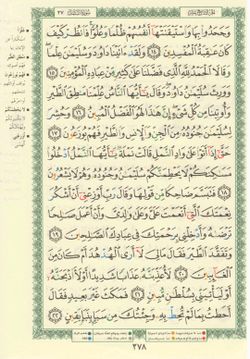 وَجَحَدُواْ بِهَا وَٱسْتَيْقَنَتْهَآ أَنفُسُهُمْ ظُلْمًا وَعُلُوًّا فَٱنظُرْ كَيْفَ
كَانَ عَٰقِبَةُ ٱلْمُفْسِدِينَ ١٤ وَلَقَدْ ءَاتَيْنَا دَاوُۥدَ وَسُلَيْمَٰنَ عِلْمًا
وَقَالَا ٱلْحَمْدُ لِلَّهِ ٱلَّذِى فَضَّلَنَا عَلَىٰ كَثِيرٍ مِّنْ عِبَادِهِ ٱلْمُؤْمِنِينَ
١٥ وَوَرِثَ سُلَيْمَٰنُ دَاوُۥدَ وَقَالَ يَٰٓأَيُّهَا ٱلنَّاسُ عُلِّمْنَا مَنطِقَ ٱلطَّيْرِ
وَأُوتِينَا مِن كُلِّ شَىْءٍ إِنَّ هَٰذَا لَهُوَ ٱلْفَضْلُ ٱلْمُبِينُ ١٦ وَحُشِرَ
لِسُلَيْمَٰنَ جُنُودُهُۥ مِنَ ٱلْجِنِّ وَٱلْإِنسِ وَٱلطَّيْرِ فَهُمْ يُوزَعُونَ ١٧
حَتَّىٰٓ إِذَآ أَتَوْاْ عَلَىٰ وَادِ ٱلنَّمْلِ قَالَتْ نَمْلَةٌ يَٰٓأَيُّهَا ٱلنَّمْلُ ٱدْخُلُواْ
مَسَٰكِنَكُمْ لَا يَحْطِمَنَّكُمْ سُلَيْمَٰنُ وَجُنُودُهُۥ وَهُمْ لَا يَشْعُرُونَ
١٨ فَتَبَسَّمَ ضَاحِكًا مِّن قَوْلِهَا وَقَالَ رَبِّ أَوْزِعْنِىٓ أَنْ أَشْكُرَ
نِعْمَتَكَ ٱلَّتِىٓ أَنْعَمْتَ عَلَىَّ وَعَلَىٰ وَٰلِدَىَّ وَأَنْ أَعْمَلَ صَٰلِحًا
تَرْضَىٰهُ وَأَدْخِلْنِى بِرَحْمَتِكَ فِى عِبَادِكَ ٱلصَّٰلِحِينَ ١٩
وَتَفَقَّدَ ٱلطَّيْرَ فَقَالَ مَا لِىَ لَآ أَرَى ٱلْهُدْهُدَ أَمْ كَانَ مِنَ
ٱلْغَآئِبِينَ ٢٠ لَأُعَذِّبَنَّهُۥ عَذَابًا شَدِيدًا أَوْ لَأَاْذْبَحَنَّهُۥٓ
أَوْ لَيَأْتِيَنِّى بِسُلْطَٰنٍ مُّبِينٍ ٢١ فَمَكَثَ غَيْرَ بَعِيدٍ فَقَالَ
أَحَطتُ بِمَا لَمْ تُحِطْ بِهِۦ وَجِئْتُكَ مِن سَبَإٍۭ بِنَبَإٍ يَقِينٍ ٢٢
٣٧٨